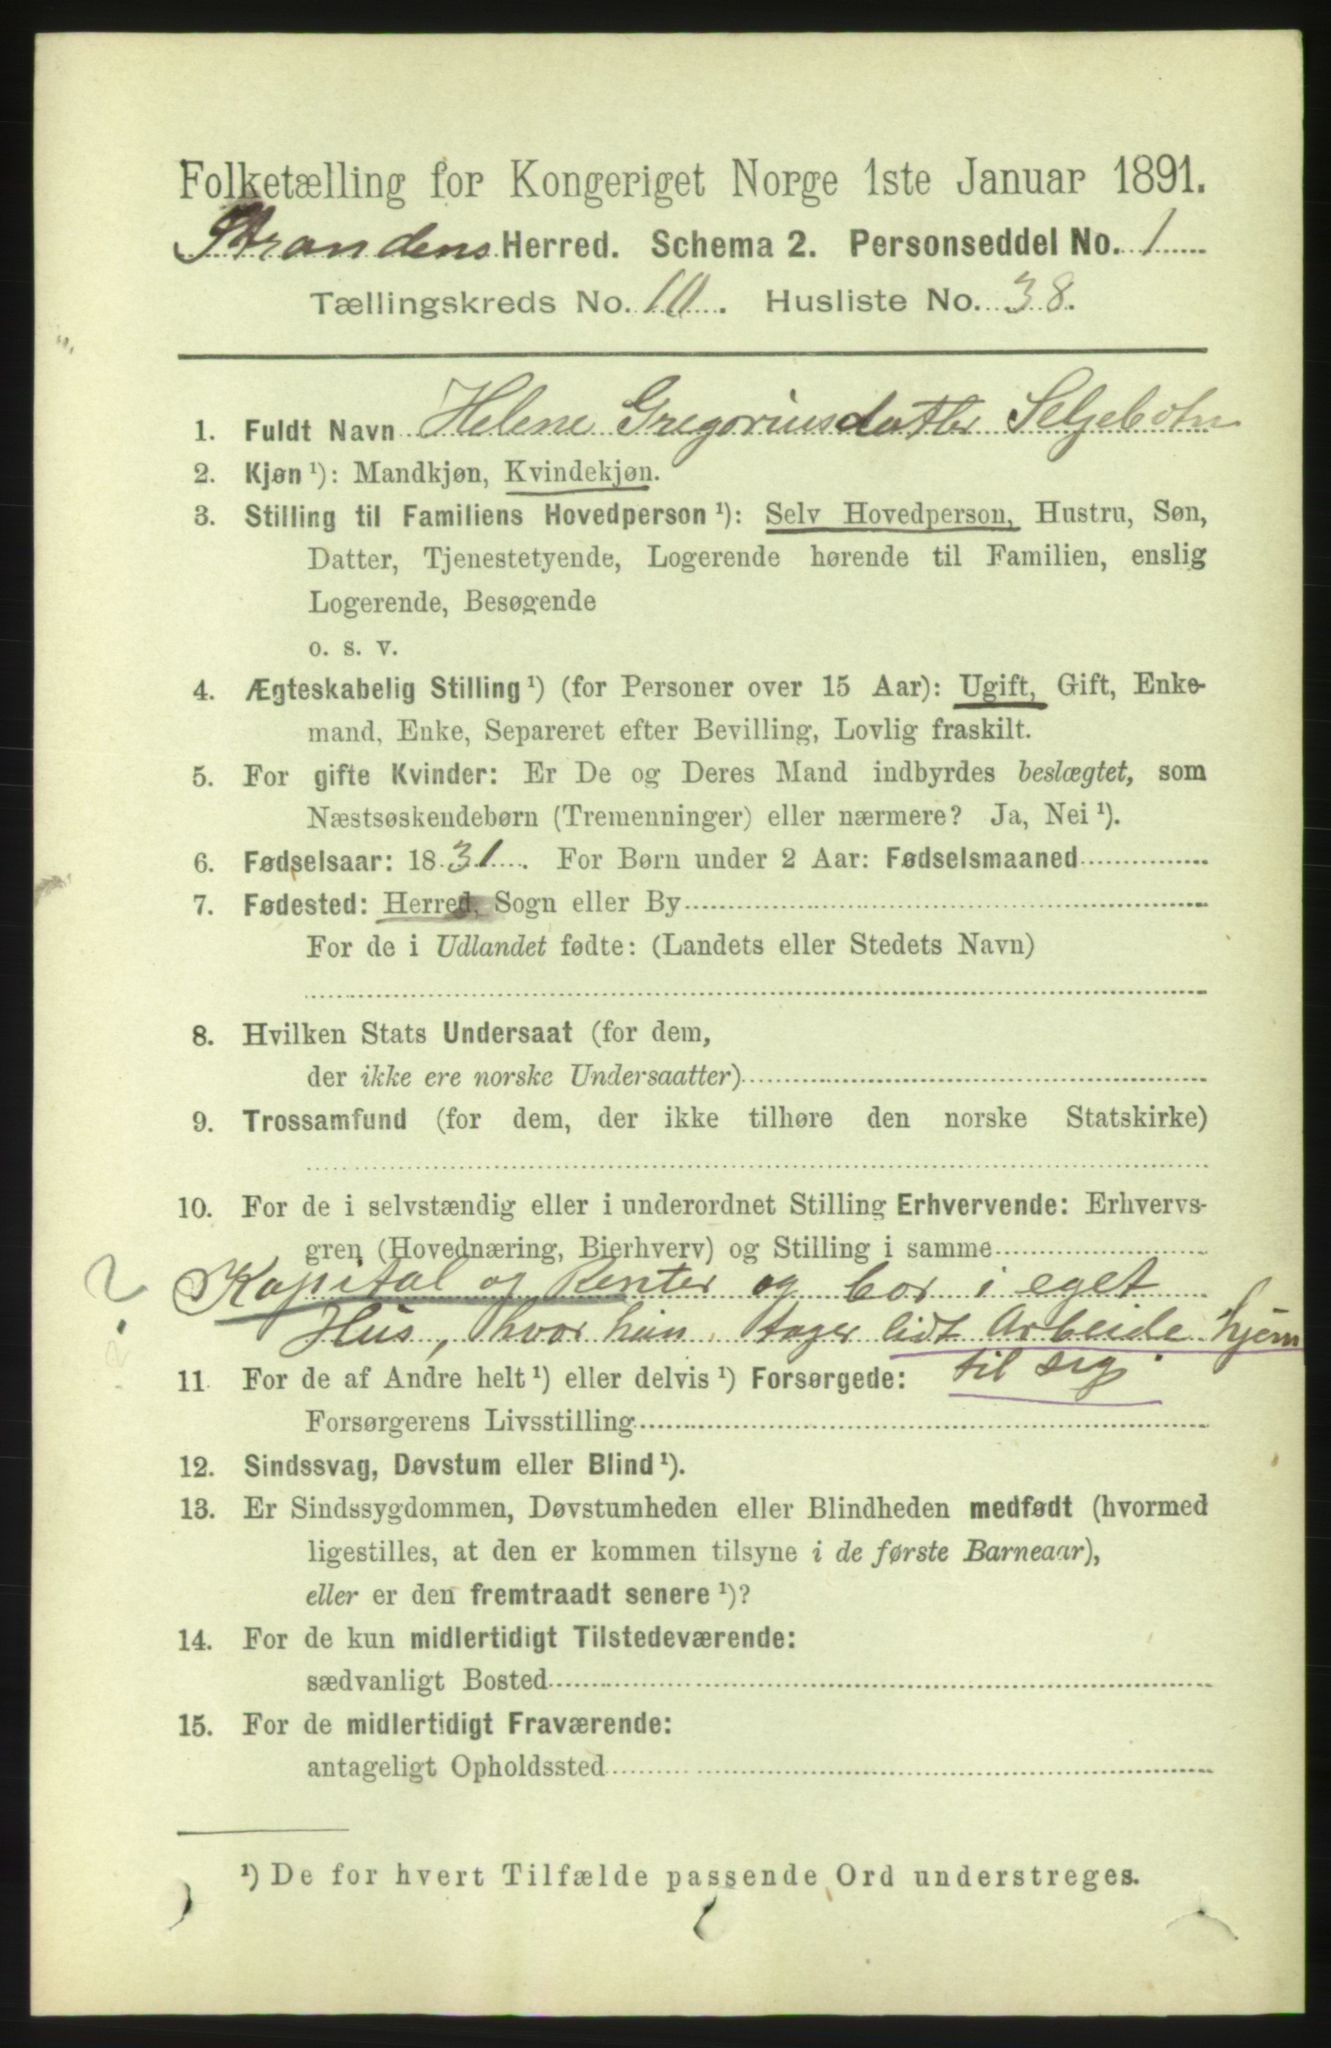 Folketælling for Kongeriget Norge 1ste Januar 1891.
Strandens Herred. Schema 2. Personseddel No. 1
Tællingskreds No. 10. Husliste No. 38.
1. Fuldt Navn Helene Gregoriusdatter Seljebotn
2. Kjøn ¹): Mandkjøn, Kvindekjøn.
3. Stilling til Familiens Hovedperson ¹): Selv Hovedperson, Hustru, Søn,
Datter, Tjenestetyende, Logerende hørende til Familien, enslig
Logerende, Besøgende
o. s. v.
4. Ægteskabelig Stilling ¹) (for Personer over 15 Aar): Ugift, Gift, Enke-
mand, Enke, Separeret efter Bevilling, Lovlig fraskilt.
5. For gifte Kvinder: Er De og Deres Mand indbyrdes beslægtet, som
Næstsøskendebørn (Tremenninger) eller nærmere? Ja, Nei ¹).
6. Fødselsaar: 1831. For Børn under 2 Aar: Fødselsmaaned
7. Fødested: Herred, Sogn eller By
For de i Udlandet fødte: (Landets eller Stedets Navn)
8. Hvilken Stats Undersaat (for dem,
der ikke ere norske Undersaatter)
9. Trossamfund (for dem, der ikke tilhøre den norske Statskirke)
10. For de i selvstændig eller i underordnet Stilling Erhvervende: Erhvervs-
gren (Hovednæring, Bierhverv) og Stilling i samme
? Kapital og Renter og bor i eget
Hus, hvor hun tager lidt Arbeide hjem
til sig.
11. For de af Andre helt ¹) eller delvis ¹) Forsørgede:
Forsørgerens Livsstilling
12. Sindssvag, Døvstum eller Blind ¹).
13. Er Sindssygdommen, Døvstumheden eller Blindheden medfødt (hvormed
ligestilles, at den er kommen tilsyne i de første Barneaar),
eller er den fremtraadt senere ¹)?
14. For de kun midlertidigt Tilstedeværende:
sædvanligt Bosted
15. For de midlertidigt Fraværende:
antageligt Opholdssted
¹) De for hvert Tilfælde passende Ord understreges.